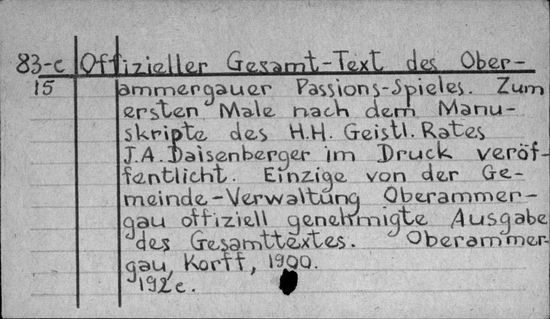 83-c Offizieller Gesamt-Text des Ober-
15 ammergauer Passions-Spieles. Zum
ersten Male nach dem Manu-
skripte des H.H. Geistl. Rates
J.A. Daisenberger im Druck veröf-
fentlicht. Einzige von der Ge-
meinde-Verwaltung Oberammer-
gau offiziell genehmigte Ausgabe
des Gesamttextes. Oberammer-
gau, Korff, 1900.
192c.